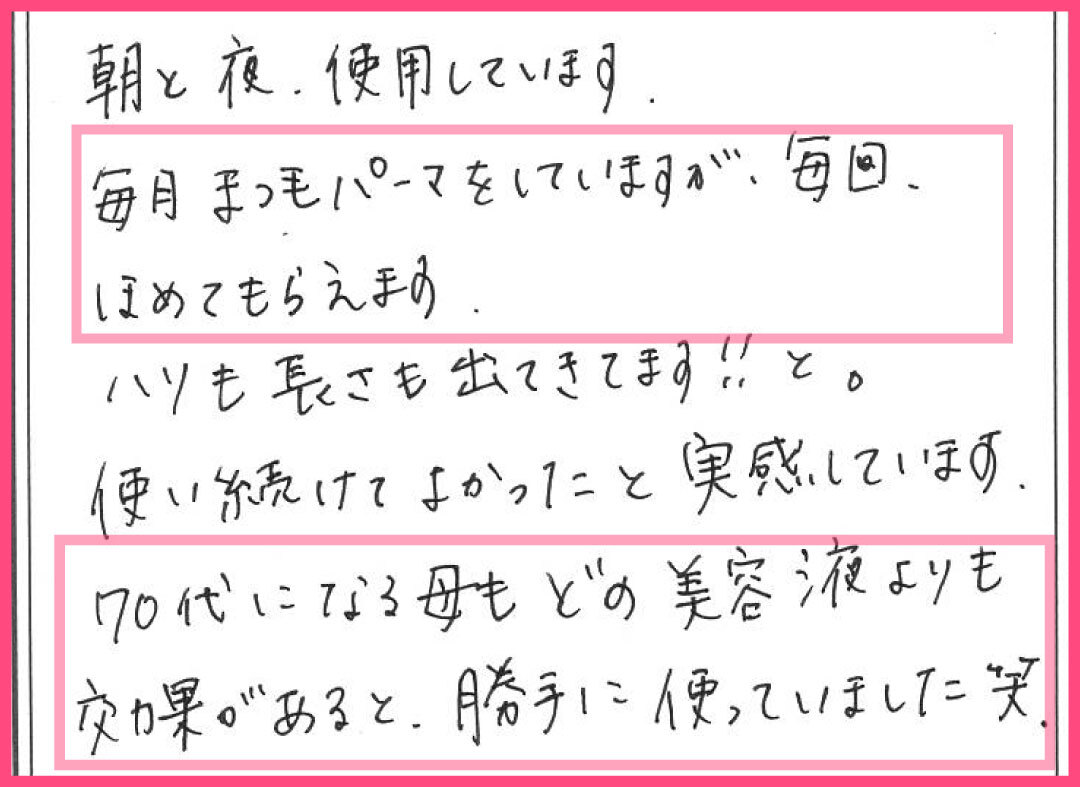 朝と夜、使用しています.
毎月まつ毛パーマをしていますが、毎回、
ほめてもらえます.
ハリも長さも出てきてます!!と。
使い続けてよかったこと実感しています.
70代になる母もどの美容液よりも
効果があると、勝手に使っていました笑.